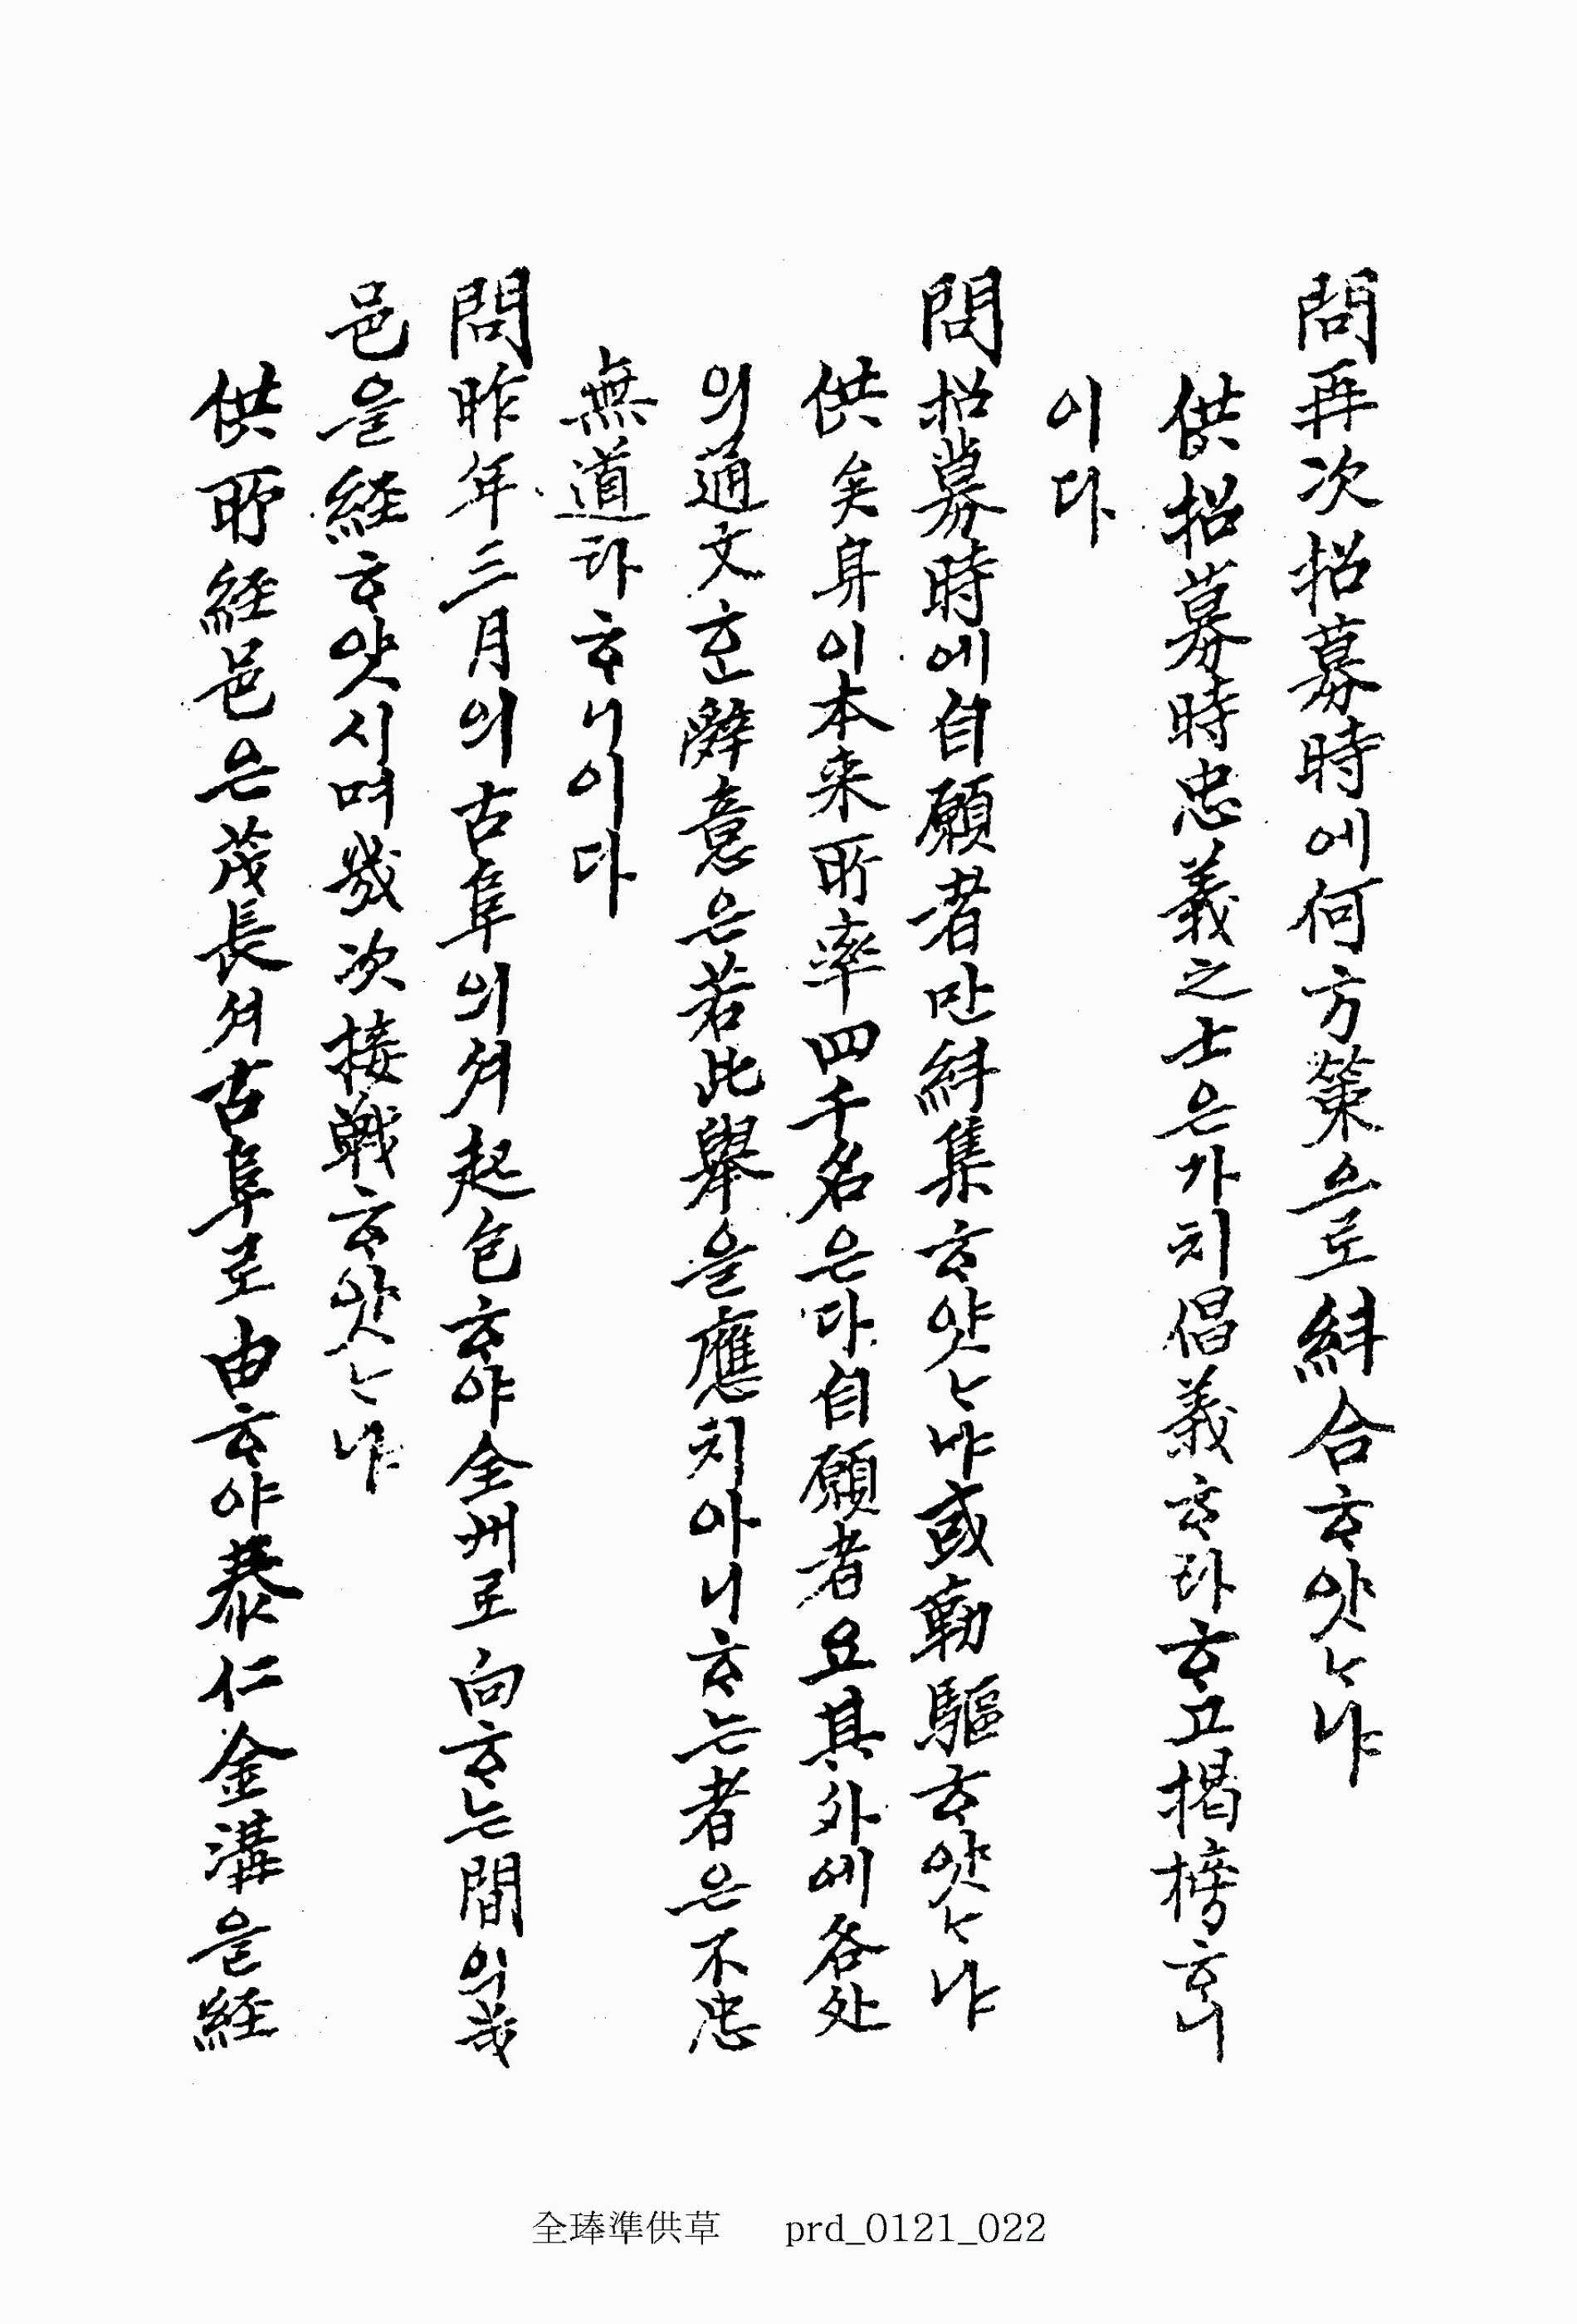 問再次招募時에何方策으로糾合ᄒᆞ얏ᄂᆞ냐
供招募時忠義之士은가치倡義ᄒᆞ라ᄒᆞ고揭榜ᄒᆞ니
이다
問招募時에自願者만糾集ᄒᆞ얏ᄂᆞ냐或勒驅ᄒᆞ얏ᄂᆞ냐
供矣身이本来所率四千名은다自願者요其外에各処
의通文ᄒᆞᆫ辭意은若此擧을應치아니ᄒᆞ는者은不忠
無道라ᄒᆞ니이다
問昨年三月의古阜의셔起包ᄒᆞ야全州로向ᄒᆞ는間의幾
邑을経ᄒᆞ얏시며幾次接戰ᄒᆞ얏ᄂᆞ냐
供所経邑은茂長셔古阜로由ᄒᆞ야泰仁金溝을経
全琫準供草 prd_0121_022